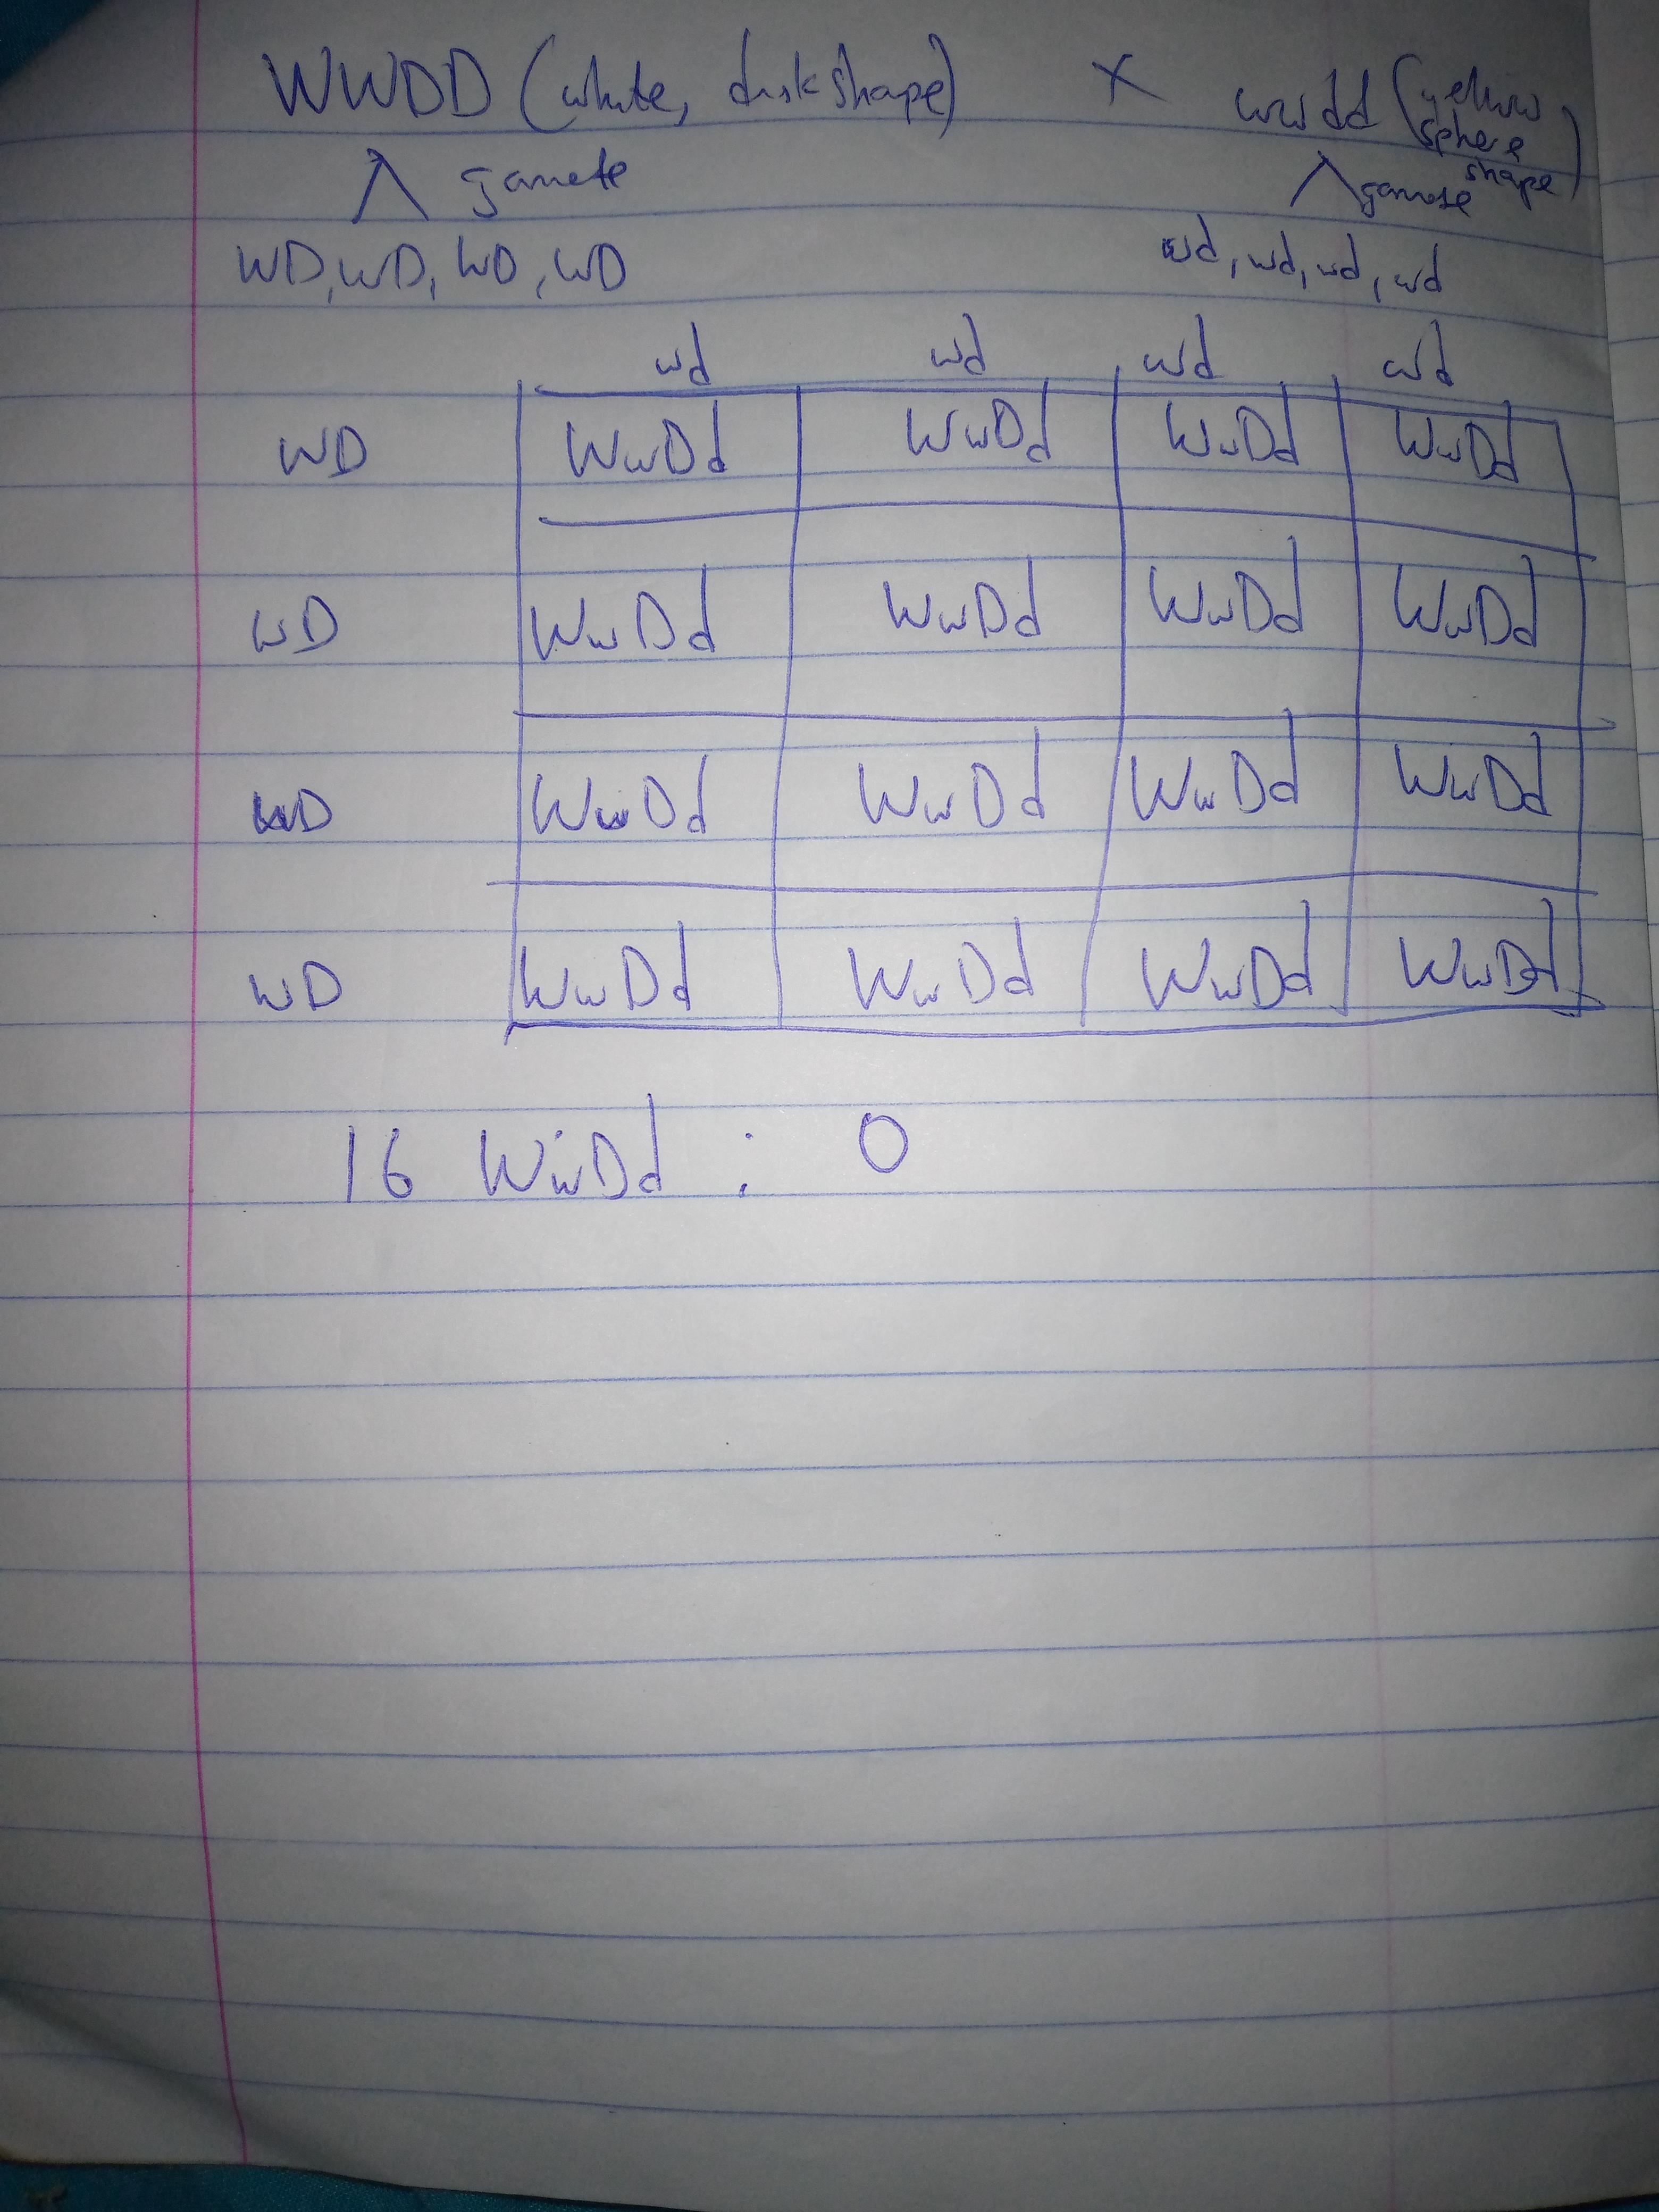 WWDD (white, disk shape) X wwdd (yellow
sphere
shape)
gamete gamete
WD, WD, WD, WD wd, wd, wd, wd
wd wd wd wd
WD WwDd WwDd WwDd WwDd
WD WwDd WwDd WwDd WwDd
WD WwDd WwDd WwDd WwDd
WD WwDd WwDd WwDd WwDd
16 WwDd : 0